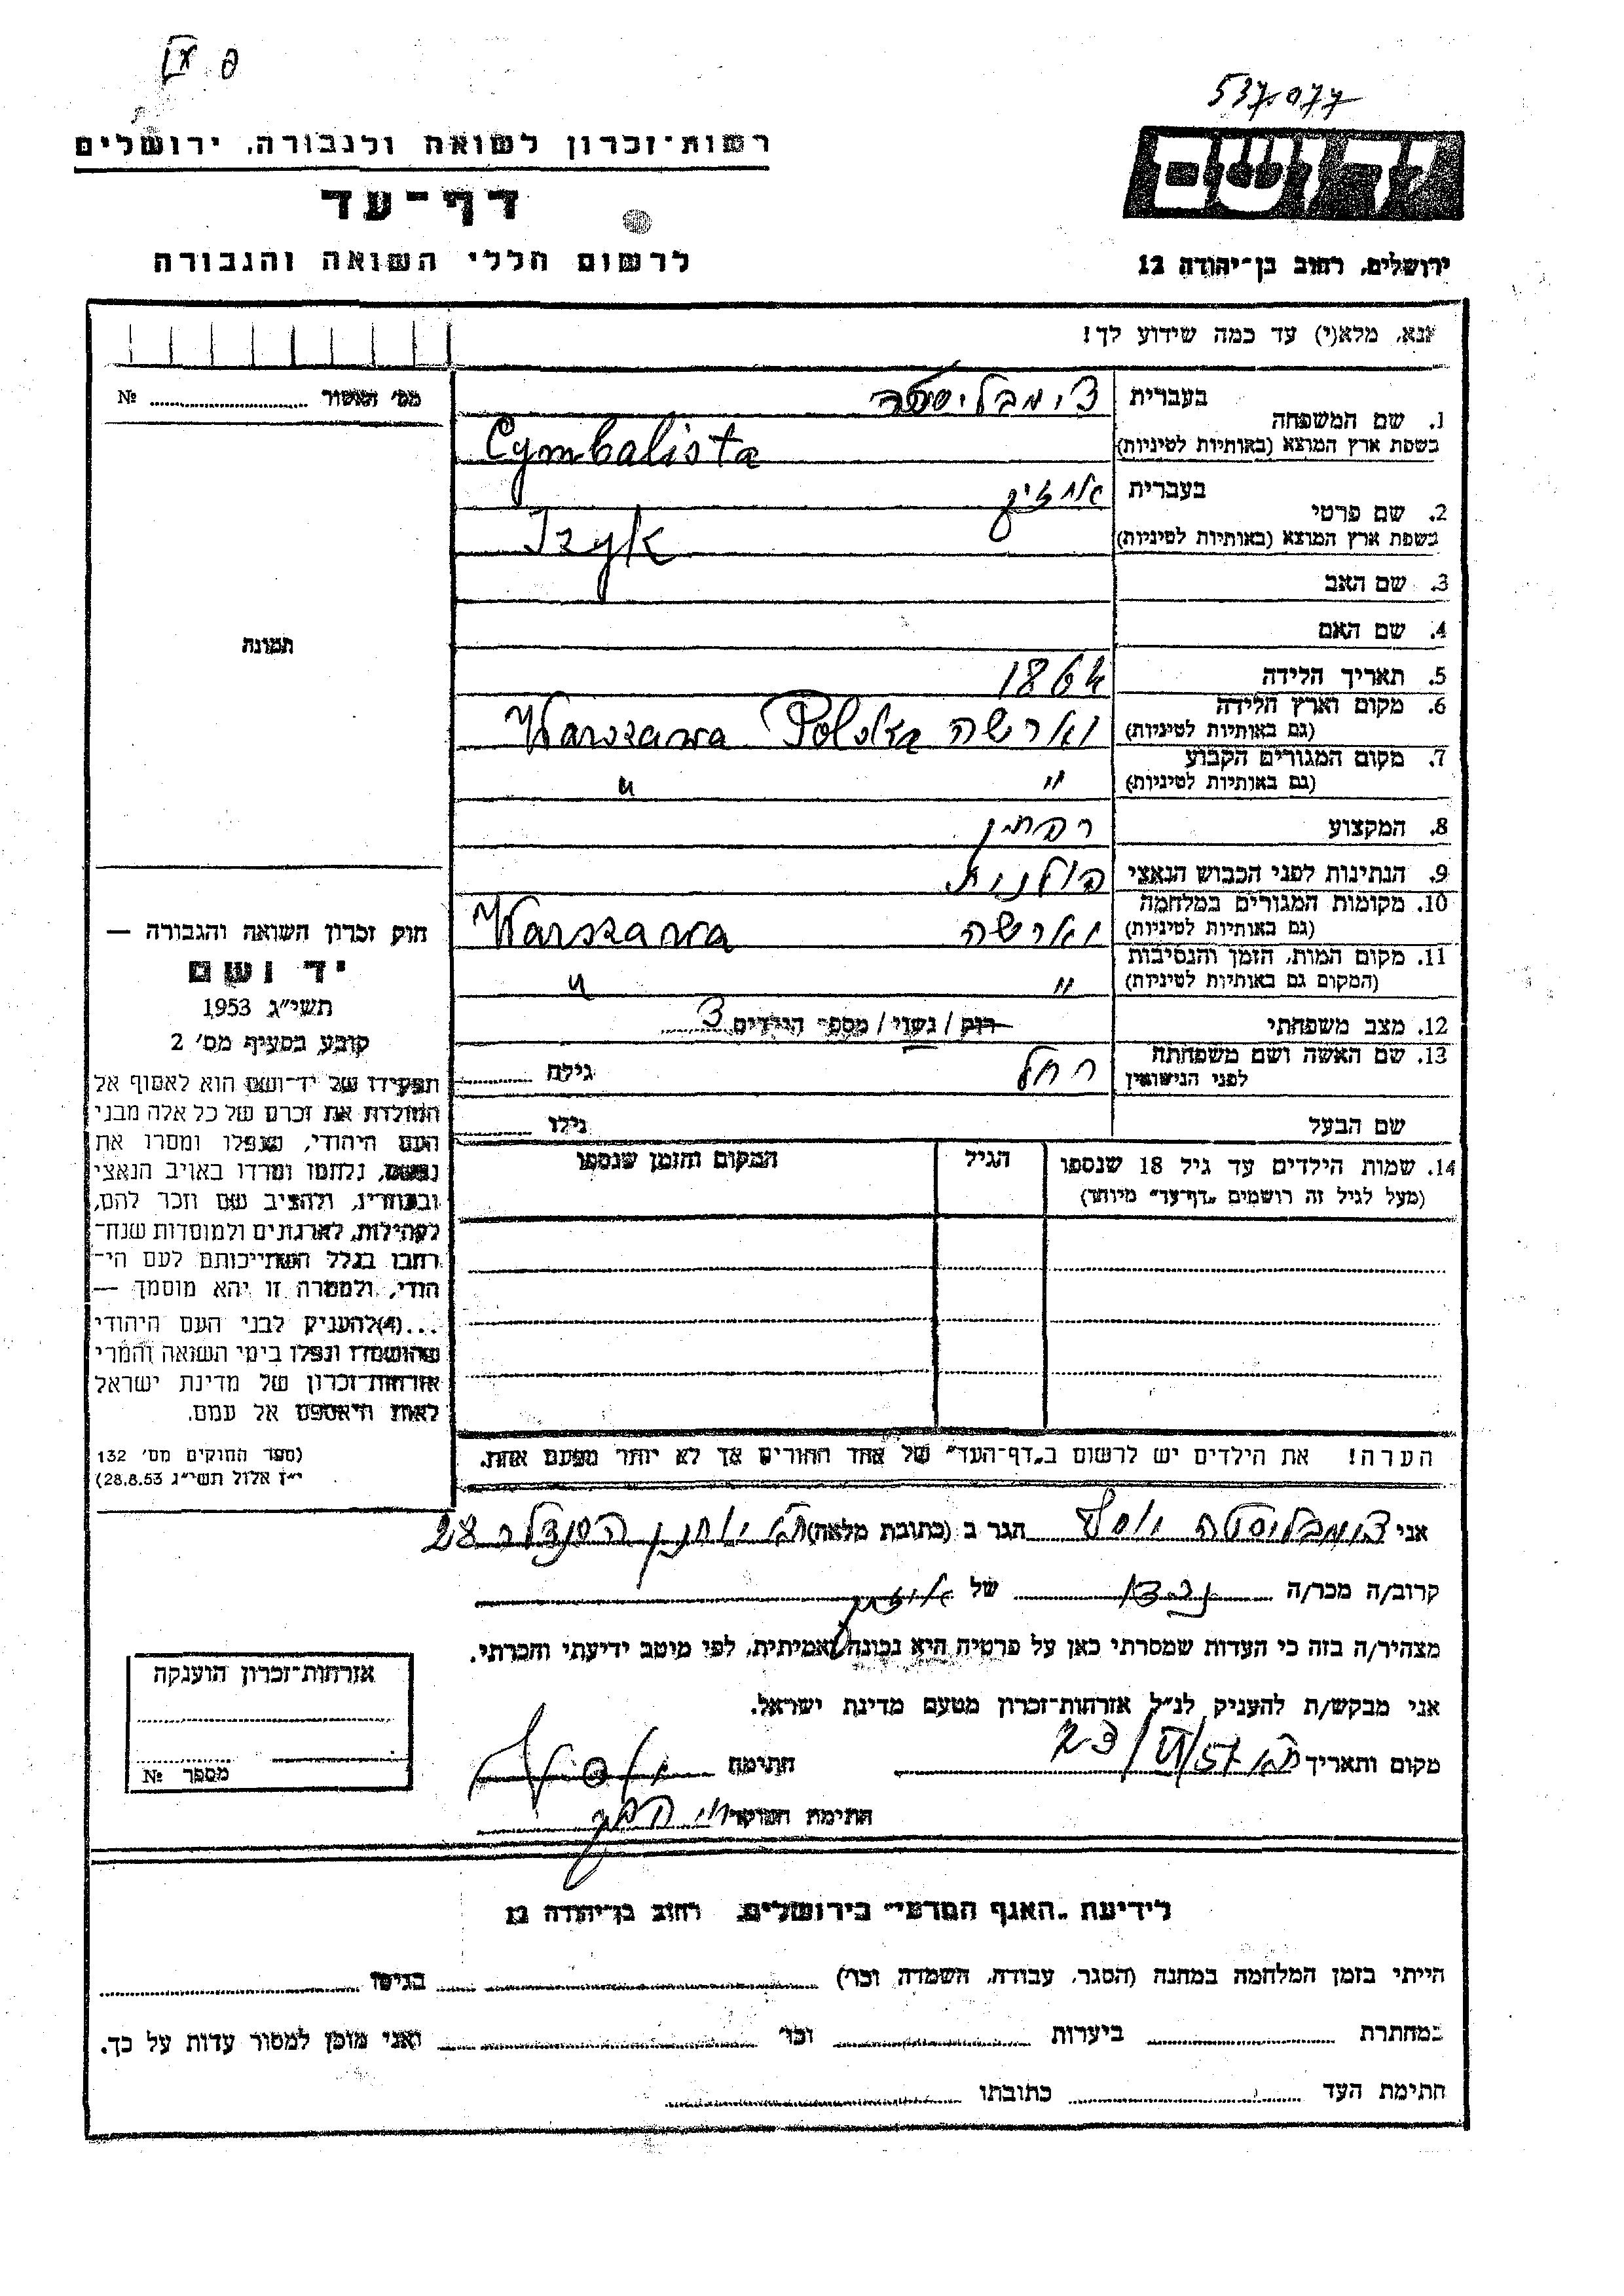 537077
רשות-זכרון לשואה ולגבורה, ירושלים
דף-עד
לרשום חללי השואה והגבורה
יד ושם
ירושלים, רחוב בן-יהודה 12
נא, מלא(י) עד כמה שידוע לך!
מס' האשור № 
1. שם המשפחה
בעברית צימבליסטה
בשפת ארץ המוצא (באותיות לטיניות) Cymbalista
2. שם פרטי
בעברית איזיק
בשפת ארץ המוצא (באותיות לטיניות) Izyk
3. שם האב
4. שם האם
5. תאריך הלידה 1864
6. מקום וארץ הלידה
(גם באותיות לטיניות) וארשה Warszawa Polska
7. מקום המגורים הקבוע
(גם באותיות לטיניות) " "
8. המקצוע
9. הנתינות לפני הכבוש הנאצי פולנית
10. מקומות המגורים במלחמה
(גם באותיות לטיניות) וארשה Warszawa
11. מקום המות, הזמן והנסיבות
(המקום גם באותיות לטיניות) " "
12. מצב משפחתי רוק / נשוי / מספר הילדים 3
13. שם האשה ושם משפחתה
לפני הנישואין רחל גילה
שם הבעל גילו
14. שמות הילדים עד גיל 18 שנספו
(מעל לגיל זה רושמים "דף-עד" מיוחד)
הגיל
המקום והזמן שנספו
הערה! את הילדים יש לרשום ב"דף-העד" של אחד ההורים אך לא יותר מפעם אחת.
תמונה
חוק זכרון השואה והגבורה —
יד ושם
תשי"ג 1953
קובע בסעיף מס' 2
תפקידו של יד-ושם הוא לאסוף אל
המולדת את זכרם של כל אלה מבני
העם היהודי, שנפלו ומסרו את
נפשם, נלחמו ומרדו באויב הנאצי
ובעוזריו, ולהציב שם וזכר להם,
לקהילות, לארגונים ולמוסדות שנח-
רבו בגלל השתייכותם לעם הי-
הודי, ולמטרה זו יהא מוסמך —
...(4)להעניק לבני העם היהודי
שהושמדו ונפלו בימי השואה והמרי
אזרחות-זכרון של מדינת ישראל
לאות היאספם אל עמם.
(ספר החוקים מס' 132
י"ז אלול תשי"ג 28.8.53)
אני צימבליסטה יוסף הגר ב (כתובת מלאה) יוחנן הסנדלר 28
קרוב/ה מכר/ה נכדו של איזיק
מצהיר/ה בזה כי העדות שמסרתי כאן על פרטיה היא נכונה ואמיתית, לפי מיטב ידיעתי והכרתי.
אני מבקש/ת להעניק לנ"ל אזרחות-זכרון מטעם מדינת ישראל.
מקום ותאריך חתימה
חתימת הפוקד
אזרחות-זכרון הוענקה
מספר №
לידיעת "האגף המדעי" בירושלים, רחוב בן-יהודה 12
הייתי בזמן המלחמה במחנה (הסגר, עבודה, השמדה וכו') בגיטו
במחתרת ביערות וכו' ואני מוכן למסור עדות על כך.
חתימת העד כתובתו